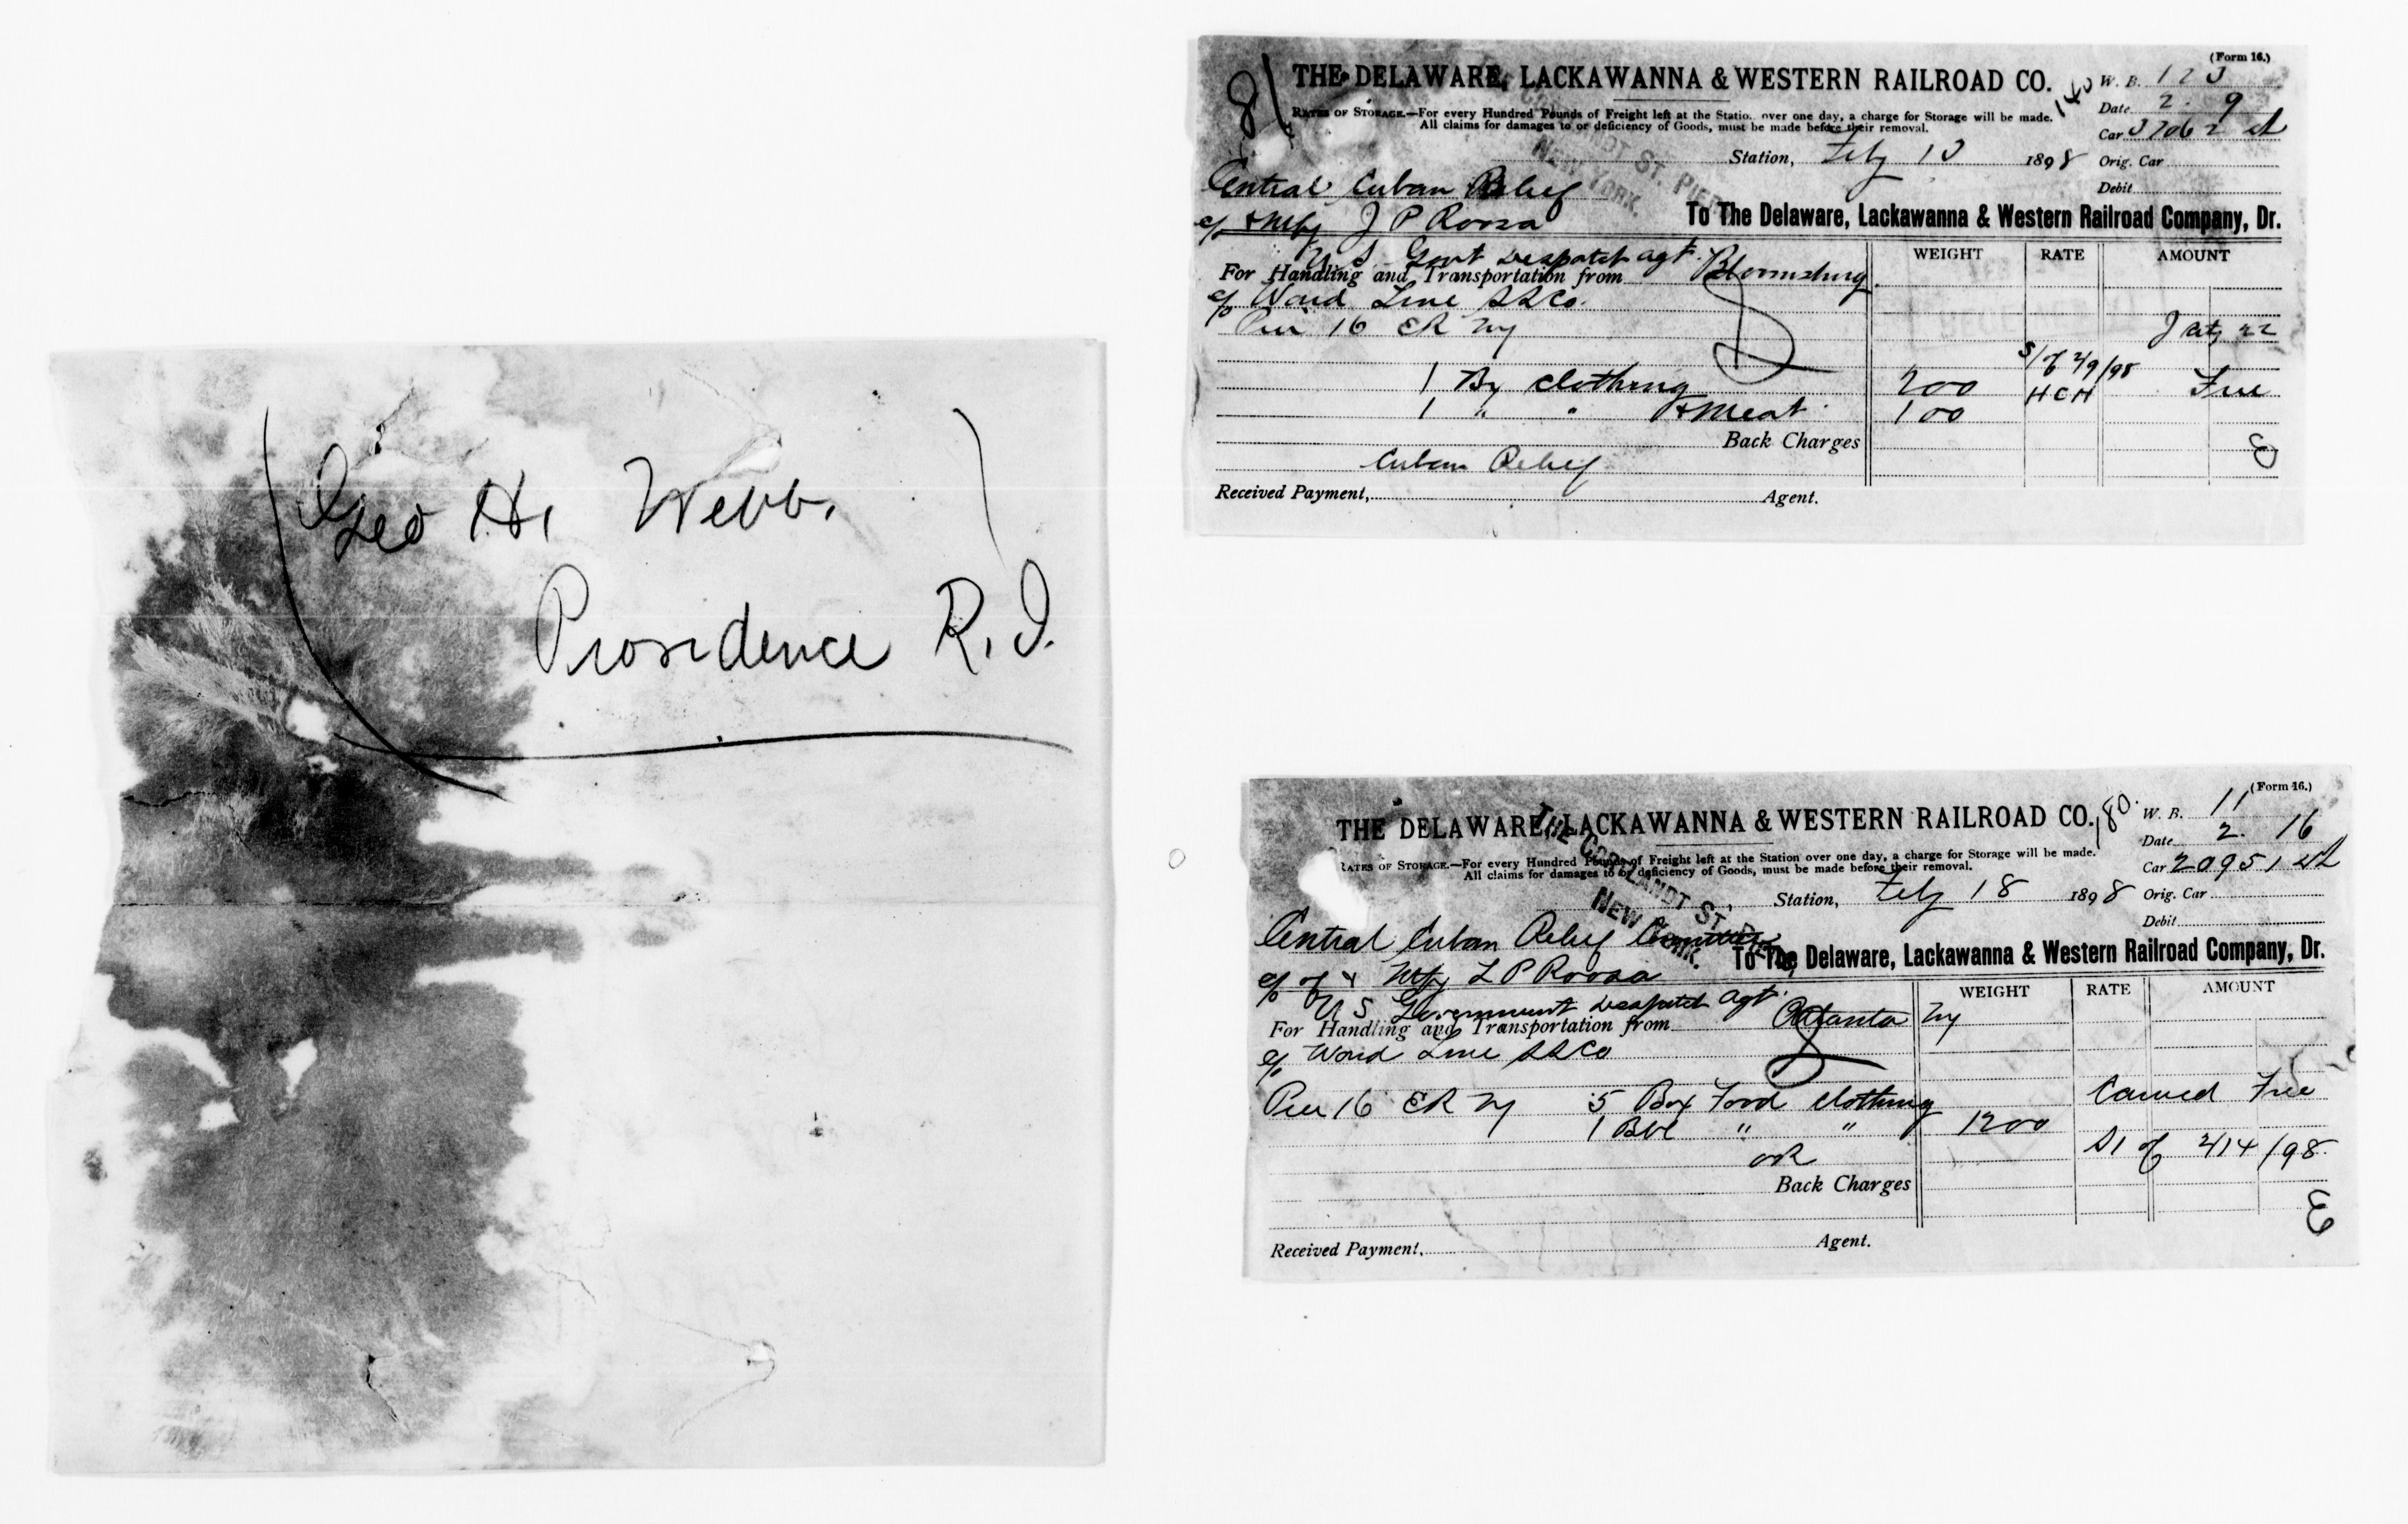 Geo H. Webb.
Providence R.I.
81
(Form 16.)
THE DELAWARE, LACKAWANNA & WESTERN RAILROAD CO.
140
W. B. 123
RATES OF STORAGE.—For every Hundred Pounds of Freight left at the Station over one day, a charge for Storage will be made.
Date 2. 9
All claims for damages to or deficiency of Goods, must be made before their removal.
Car 37062
Station, Feby 13 1898
Orig. Car
Debit
NEW YORK.
Central Cuban Relief
c/o + Ntfy J P Roosa
To The Delaware, Lackawanna & Western Railroad Company, Dr.
U S Govt Despatch agt.
WEIGHT RATE AMOUNT
For Handling and Transportation from Bloomsburg
c/o Ward Line SS Co.
Pier 16 ER NY
S/ of 2/9/98
1 Bx Clothing 200 HCH Free
1 " " + Meat 100
Back Charges
Cuban Relief
Received Payment, Agent.
(Form 16.)
THE DELAWARE, LACKAWANNA & WESTERN RAILROAD CO.
180.
W. B. 11
RATES OF STORAGE.—For every Hundred Pounds of Freight left at the Station over one day, a charge for Storage will be made.
Date 2. 16
All claims for damages to or deficiency of Goods, must be made before their removal.
Car 20951
Station, Feby 18 1898
Orig. Car
Debit
THE CORTLANDT ST. PIER,
NEW YORK.
Central Cuban Relief Committee
c/o of + Ntfy L P Roosa
To The Delaware, Lackawanna & Western Railroad Company, Dr.
U S Government Despatch agt.
WEIGHT RATE AMOUNT
For Handling and Transportation from Atlanta NY
c/o Ward Line SS Co
Pier 16 ER NY 5 Box Food Clothing Carried Free
1 Bbl " " 1200
OR S1 of 2/14/98
Back Charges
Received Payment, Agent.